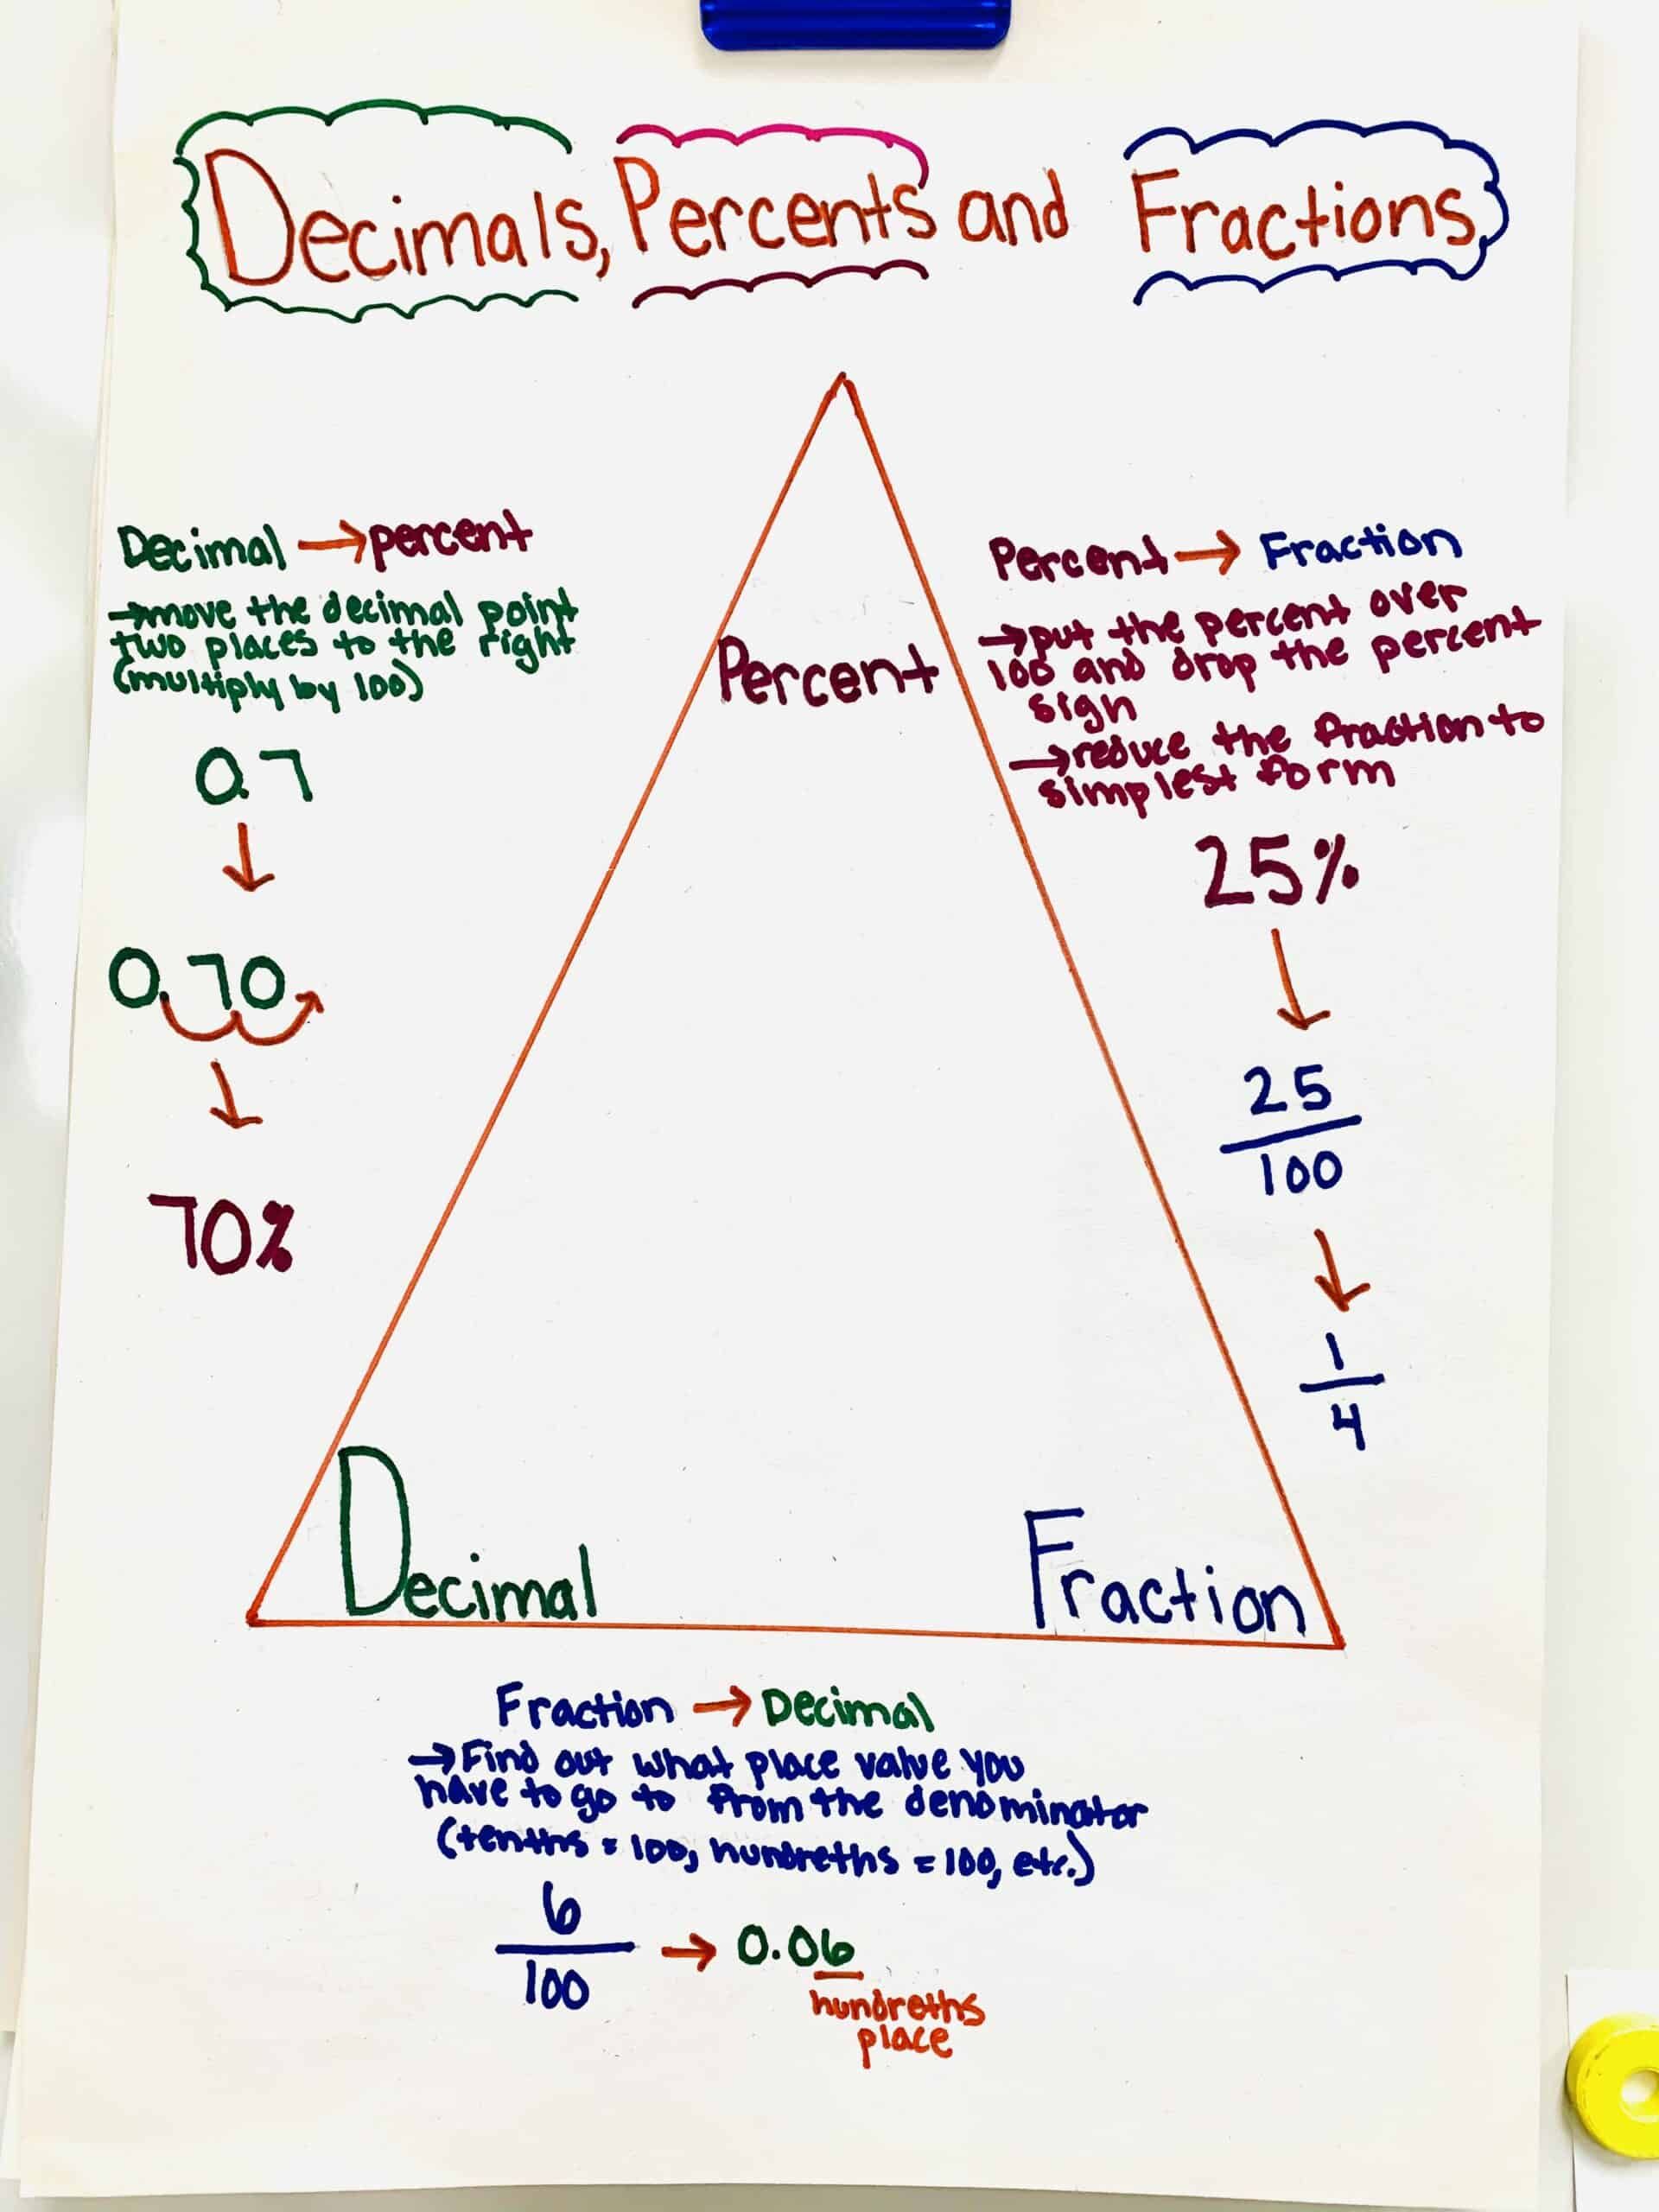 Decimals, Percents and Fractions
Decimal → percent
→move the decimal point
two places to the right
(multiply by 100)
0.7
↓
0.70
↓
70%
Percent
Percent → Fraction
→put the percent over
100 and drop the percent
sign
→reduce the fraction to
simplest form
25%
↓
25
100
↓
1
4
Decimal
Fraction
Fraction → Decimal
→Find out what place value you
have to go to from the denominator
(tenths = 100, hundreths = 100, etc.)
6
100
→ 0.06
hundreths
place